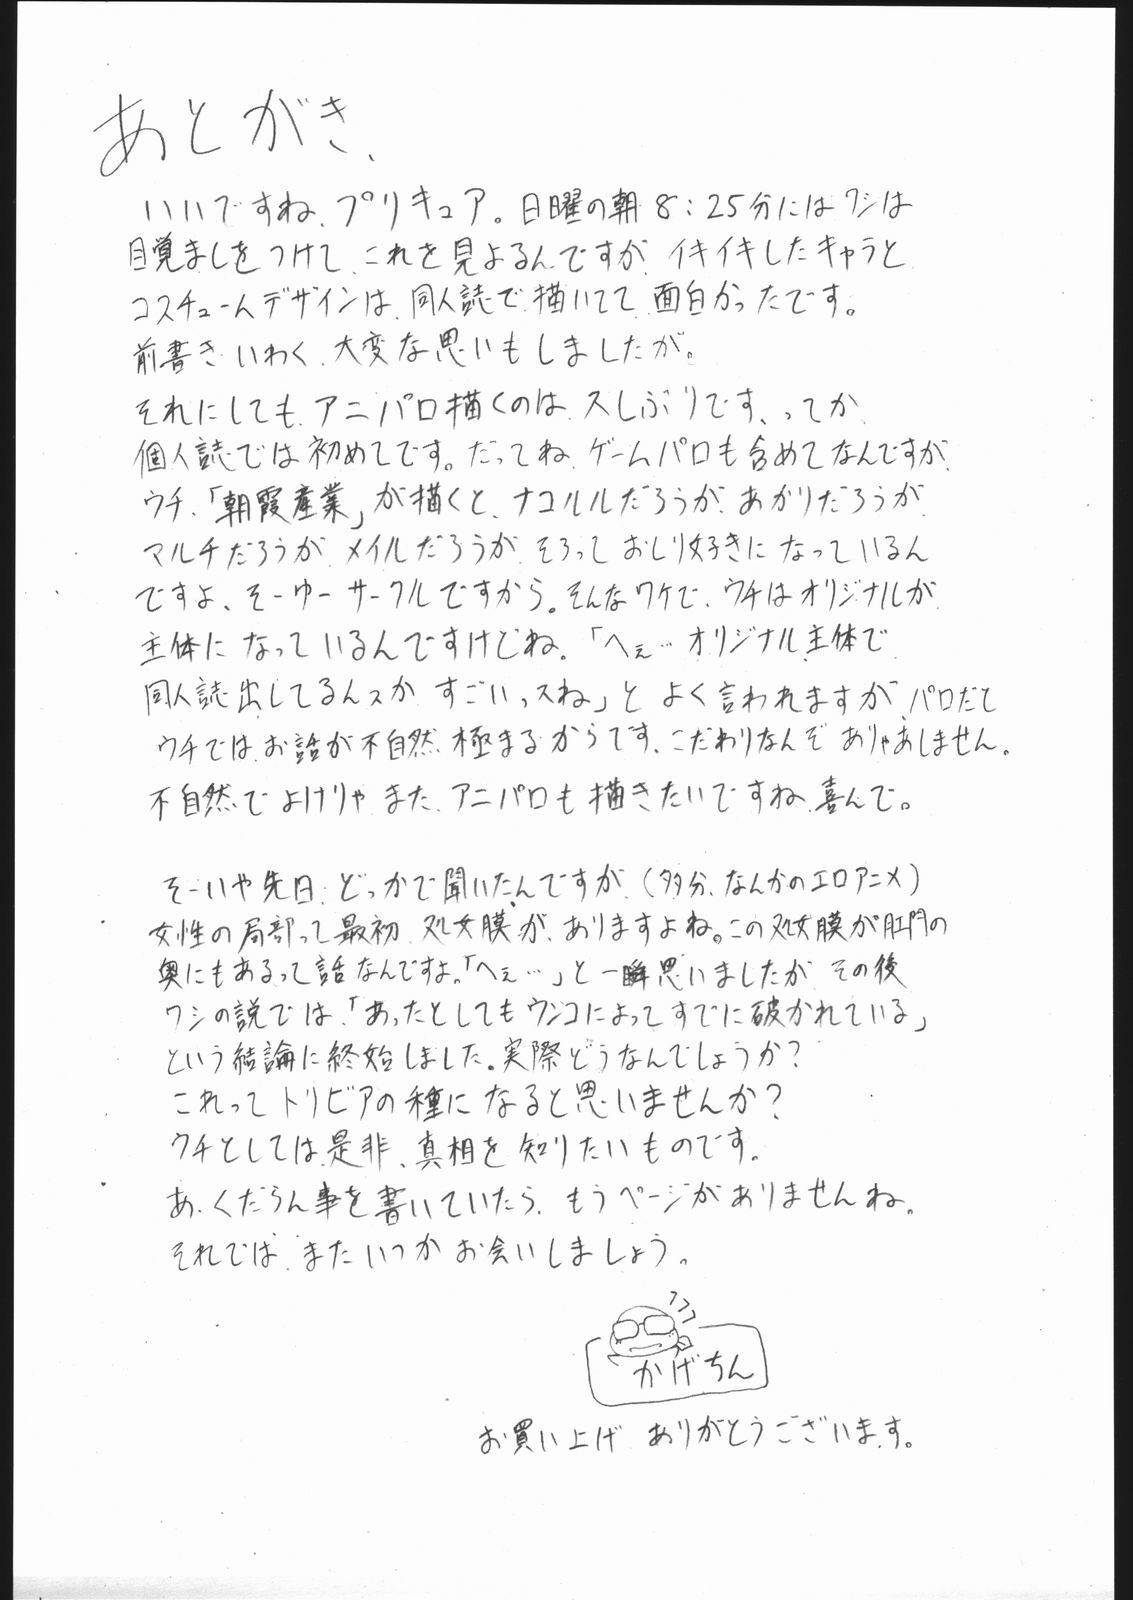 あとがき、
いいですね、プリキュア。日曜の朝8:25分にはワシは
目覚ましをつけて、これを見よるんですが、イキイキしたキャラと
コスチュームデザインは、同人誌で描いてて、面白かったです。
前書きいわく、大変な思いもしましたが。
それにしても、アニパロ描くのは、久しぶりです、ってか、
個人誌では初めてです。だってね、ゲームパロも含めてなんですが、
ウチ、「朝霞産業」が描くと、ナコルルだろうが、あかりだろうが、
マルチだろうが、メイルだろうが、そろっておしり好きになっているん
ですよ、そーゆーサークルですから。そんなワケで、ウチはオリジナルが
主体になっているんですけどね。「へぇ…オリジナル主体で
同人誌出してるんスか、すごいっスね」とよく言われますが、パロだと
ウチでは、お話が不自然極まるからです、こだわりなんぞありゃあしません。
不自然でよけりゃ、また、アニパロも描きたいですね、喜んで。
そーいや先日、どっかで聞いたんですが、(多分、なんかのエロアニメ)
女性の局部って最初、処女膜が、ありますよね。この処女膜が肛門の
奥にもあるって話なんですよ。「へぇ…」と一瞬思いましたが、その後
ワシの説では、「あったとしてもウンコによってすでに破かれている」
という結論に終始しました。実際どうなんでしょうか?
これってトリビアの種になると思いませんか?
ウチとしては、是非、真相を知りたいものです。
あ、くだらん事を書いていたら、もうページがありませんね。
それでは、またいつかお会いしましょう。
かげちん
お買い上げ、ありがとうございます。